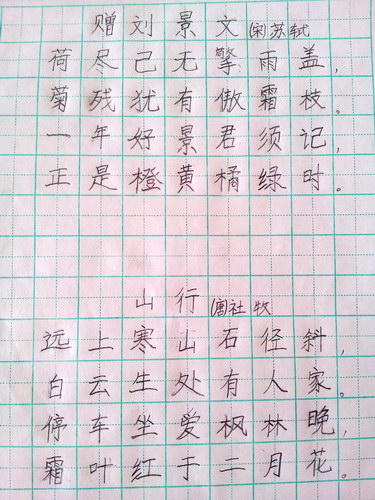 赠刘景文(宋)苏轼
荷尽己无擎雨盖,
菊残犹有傲霜枝。
一年好景君须记,
正是橙黄橘绿时。
山行(唐)杜牧
远上寒山石径斜,
白云生处有人家。
停车坐爱枫林晚,
霜叶红于二月花。